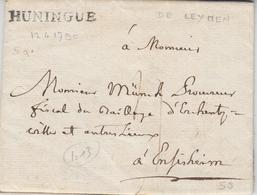 HUNINGUE
DE LEYMEN
12 4 1790
à Monsieur
Monsieur Münck Procureur
fiscal du Bailliage d'
et autres Lieux
à Ensisheim
50